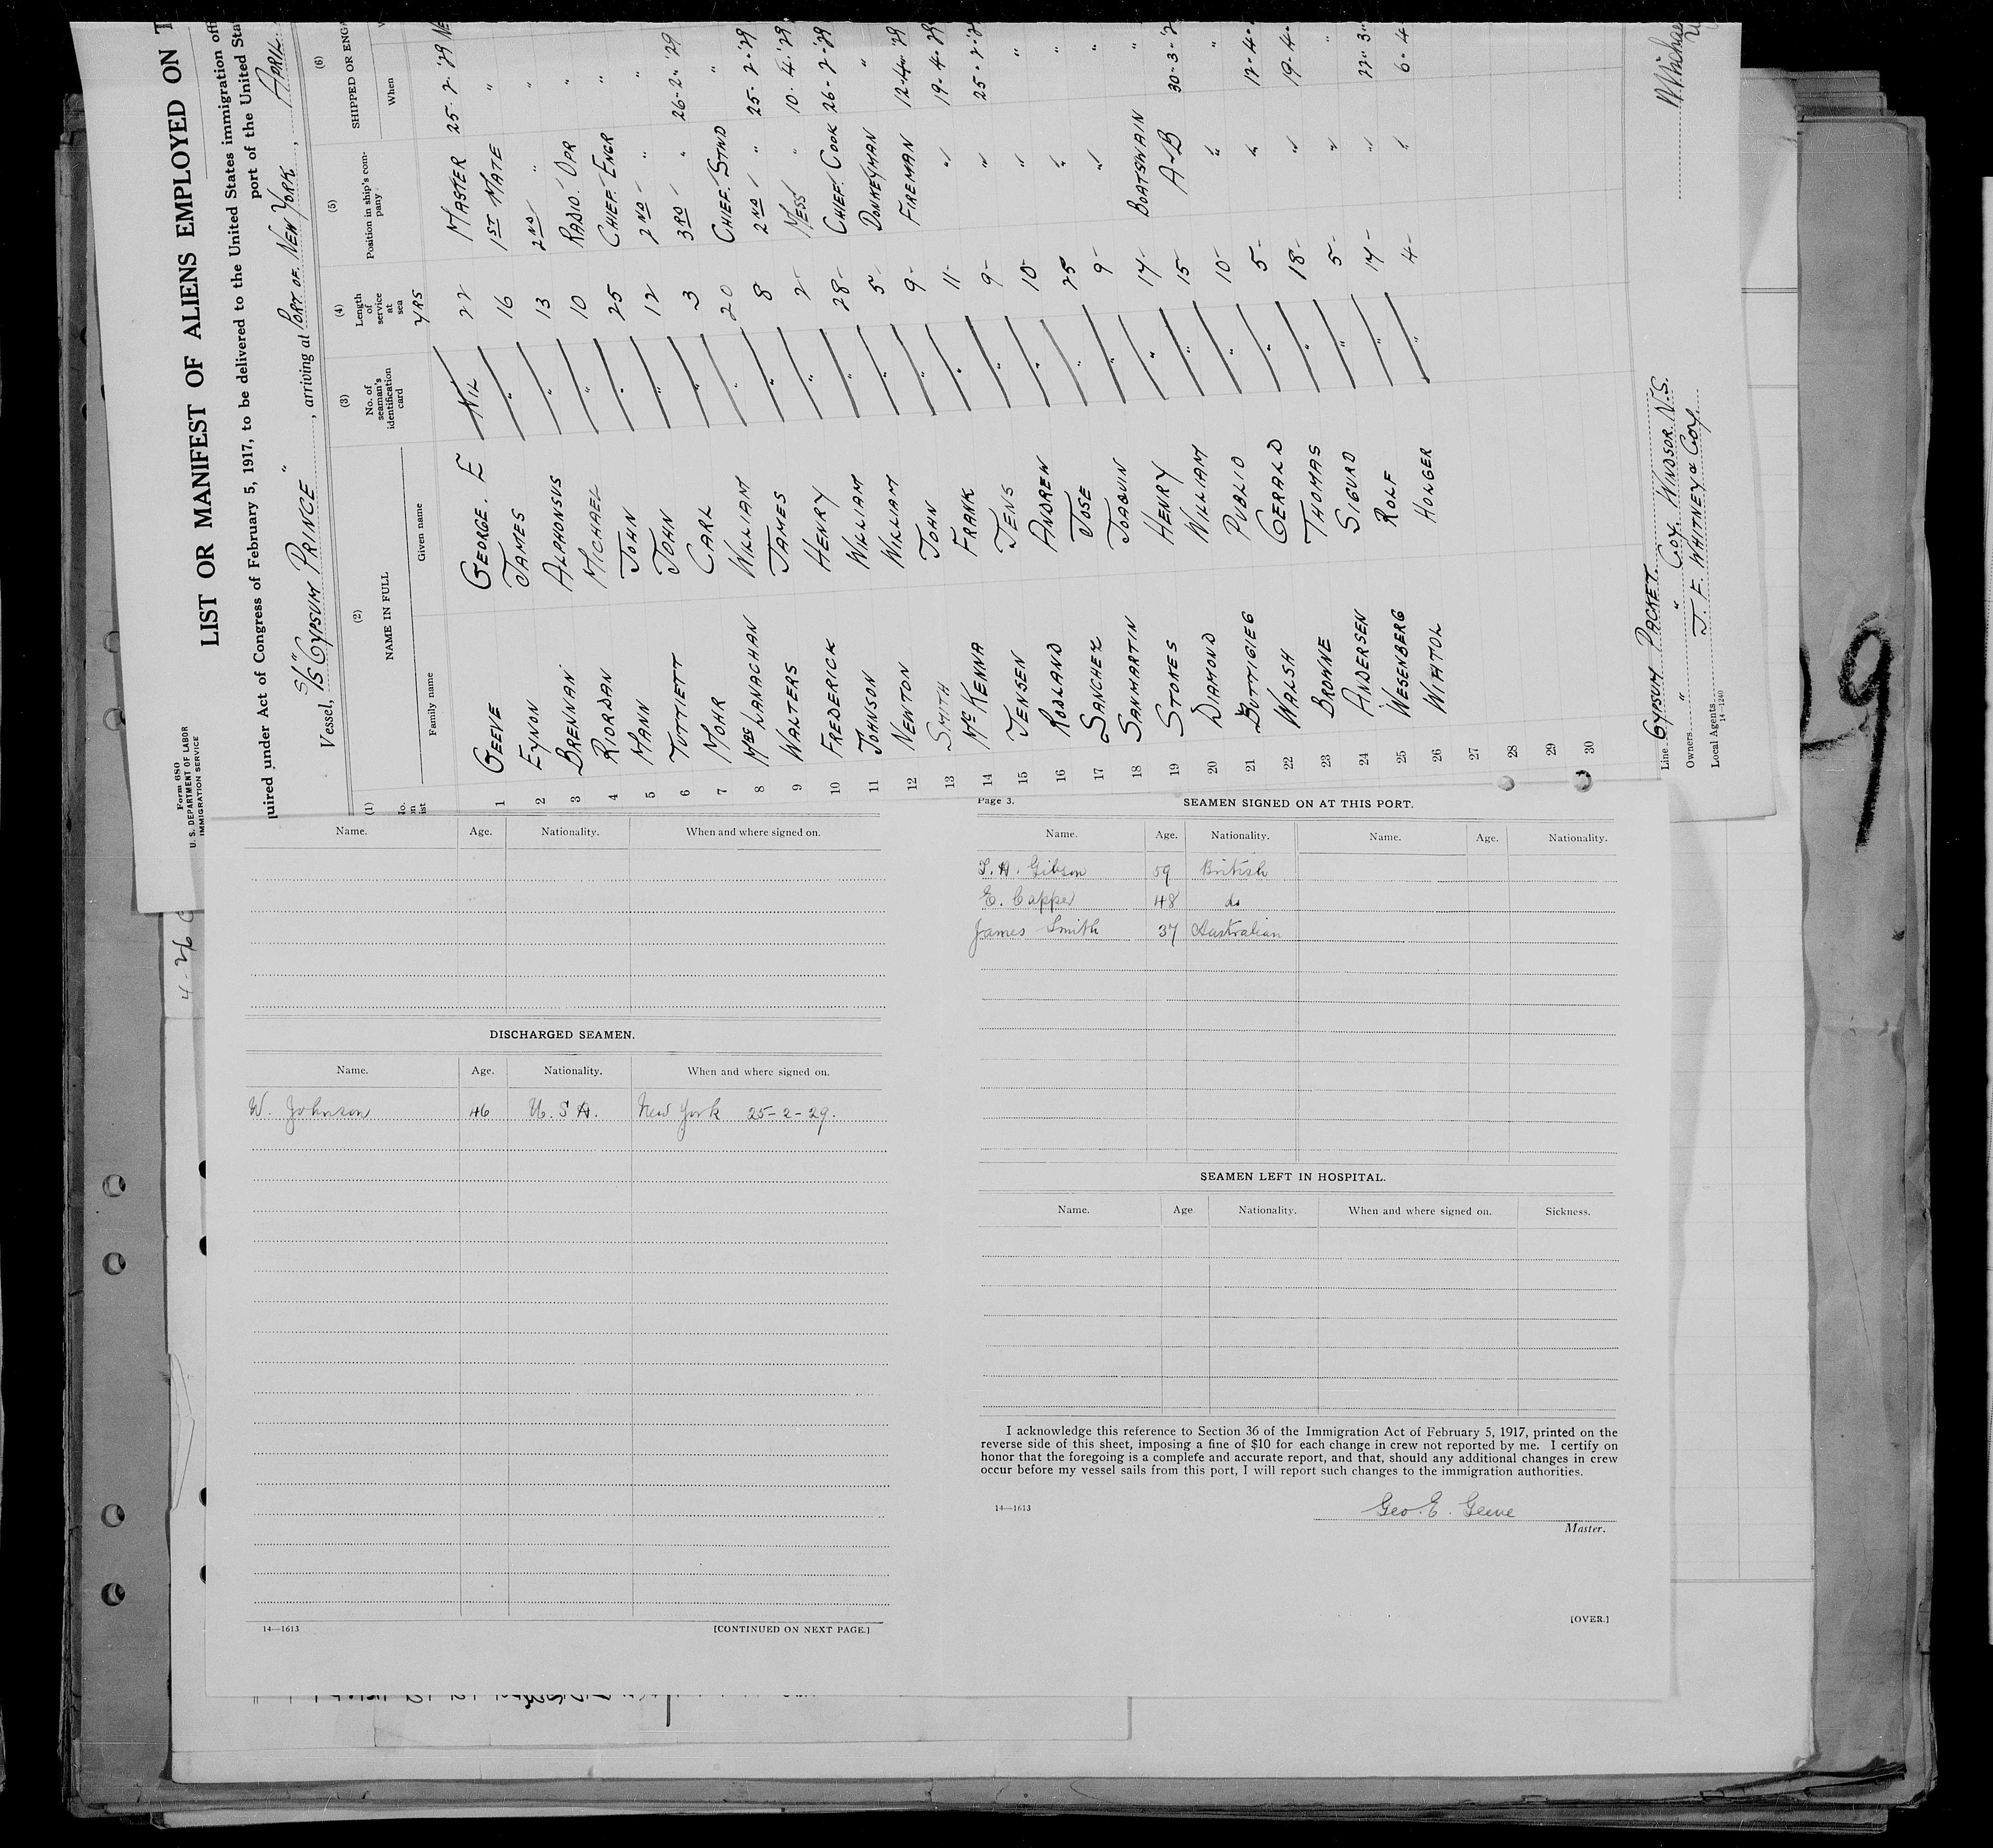 Form 680
U. S. DEPARTMENT OF LABOR
IMMIGRATION SERVICE
LIST OR MANIFEST OF ALIENS EMPLOYED ON T
uired under Act of Congress of February 5, 1917, to be delivered to the United States immigration off
port of the United Sta
Vessel, S/S "GYPSUM PRINCE", arriving at PORT OF NEW YORK, APRIL
(1) (2) (3) (4) (5) (6)
NAME IN FULL No. of seaman's identification card Length of service at sea Position in ship's company SHIPPED OR ENGA
Family name Given name YRS When
GEEVE GEORGE. E NIL 22 MASTER 25-2-29 NE
1 EYNON JAMES " 16 1ST MATE "
2 BRENNAN ALPHONSUS " 13 2ND " "
3 RIORDAN MICHAEL " 10 RADIO OPR "
4 MANN JOHN " 25 CHIEF ENGR "
5 TUTTIETT JOHN " 12 2ND " "
6 MOHR CARL " 3 3RD " 26-2-29
7 McLANACHAN WILLIAM " 20 CHIEF STWD "
8 WALTERS JAMES " 8 2ND " 25-2-29
9 FREDERICK HENRY " 2 MESS " 10-4-29
10 JOHNSON WILLIAM " 28 CHIEF COOK 26-2-29
11 NEWTON WILLIAM " 5 DONKEYMAN "
12 SMITH JOHN " 9 FIREMAN 12-4-29
13 McKENNA FRANK " 11 " 19-4-29
14 JENSEN JENS " 9 " 25-2-2
15 RODLAND ANDREW " 10 " "
16 SANCHEZ JOSE " 25 " "
17 SANMARTIN JOAQUIN " 9 " "
18 STOKES HENRY " 14 BOATSWAIN "
19 DIAMOND WILLIAM " 15 A-B 30-3-2
20 BUTTIGIEG PUBLIO " 10 " "
21 WALSH GERALD " 5 " 12-4-
22 BROWNE THOMAS " 18 " 19-4-
23 ANDERSEN SIGURD " 5 " "
24 WESENBERG ROLF " 14 " 22-3-
25 WIHTOL HOLGER " 4 " 6-4
26
27
28
29
30
Line GYPSUM PACKET
Owners " " COY. WINDSOR N.S.
Local Agents J. F. WHITNEY & COY.
14-1240
Name. Age. Nationality. When and where signed on.
DISCHARGED SEAMEN.
Name. Age. Nationality. When and where signed on.
W. Johnson 46 U. S A. New York 25-2-29.
14—1613 [CONTINUED ON NEXT PAGE.]
Page 3. SEAMEN SIGNED ON AT THIS PORT.
Name. Age. Nationality. Name. Age. Nationality.
T. A. Gibson 59 British
E. Capper 48 do
James Smith 37 Australian
SEAMEN LEFT IN HOSPITAL.
Name. Age Nationality. When and where signed on. Sickness.
I acknowledge this reference to Section 36 of the Immigration Act of February 5, 1917, printed on the
reverse side of this sheet, imposing a fine of $10 for each change in crew not reported by me. I certify on
honor that the foregoing is a complefe and accurate report, and that, should any additional changes in crew
occur before my vessel sails from this port, I will report such changes to the immigration authorities.
14—1613
Geo. E. Geeve
Master.
[OVER.]